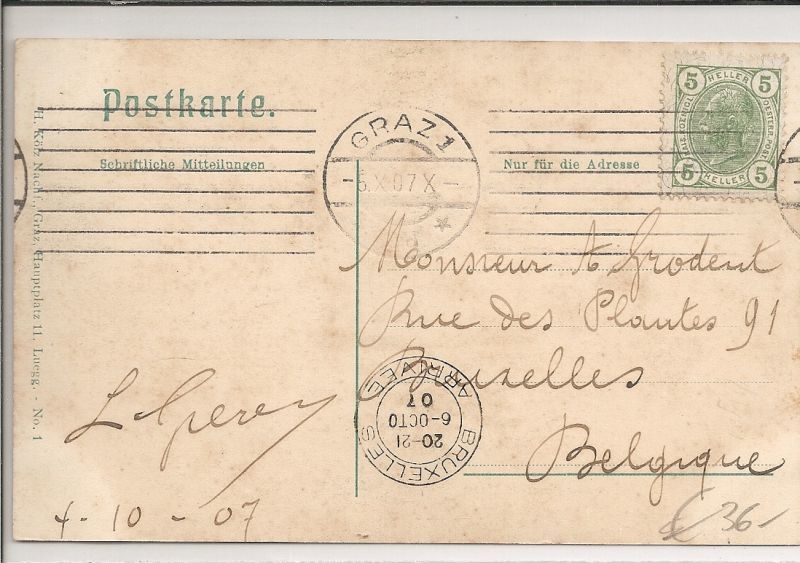 Postkarte.
Schriftliche Mitteilungen
Nur für die Adresse
GRAZ 1
X 07 X
5 HELLER 5
KAIS. KOENIGL. OESTERR. POST
5 HELLER 5
Monsieur A Grodent
Rue des Plantes 91
Bruxelles
Belgique
BRUXELLES
20-21
6-OCTO
07
ARRIVEE
4-10-07
£ 36-
H. Kölz Nachf., Graz, Hauptplatz 11, Luegg. - No. 1